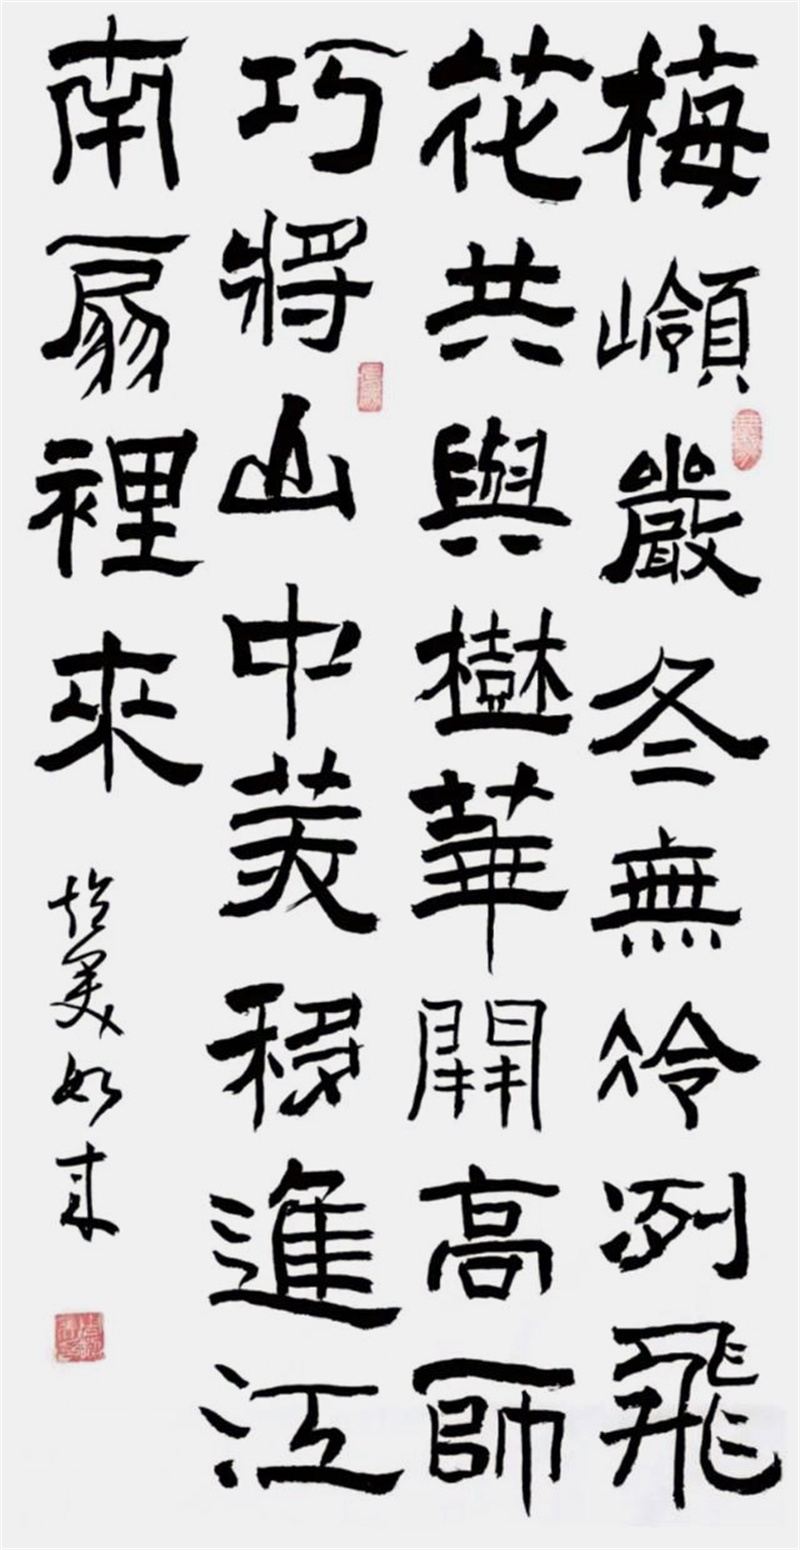 梅嶺嚴冬無冷冽飛
花共與樹華開高師
巧將山中美移進江
南扇裡來
美如来